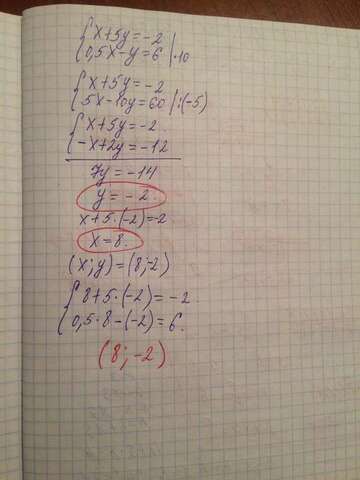 { x+5y=-2
0,5x-y=6 |·10
{ x+5y=-2
5x-10y=60 |:(-5)
{ x+5y=-2
-x+2y=-12
7y=-14
y=-2
x+5·(-2)=-2
x=8.
(x;y)=(8;-2)
{ 8+5·(-2)=-2.
0,5·8-(-2)=6.
(8;-2)